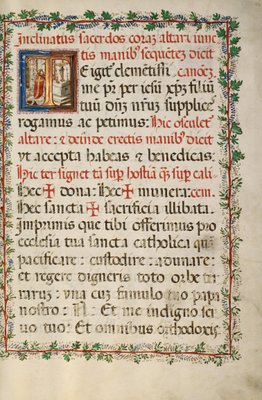 Inclinatus sacerdos corã altari iunc
tis manibꝰ sequẽtez dicit
canonez
E igit᷑ clementissi
me pr̃ per iesũ xp̃ũ filiũ
tuũ dñm nr̃uz supplices
rogamus ac petimus: Hic osculet᷑
altare: & deinde erectis manibꝰ dicit
ut accepta habeas & benedicas.
Hic ter signet tã sup̃ hostiã q̃ȝ sup̃ cali
Hec ✠ dona: Hec ✠ munera: cem.
Hec sancta ✠ sacrificia illibata.
Imprimis que tibi offerimus pro
ecclesia tua sancta catholica quã
pacificare: custodire: adunare:
et regere digneris toto orbe ter
raruz: una cuz famulo tuo papa
nostro: N: Et me indigno ser
uo tuo: Et omnibus orthodoxis